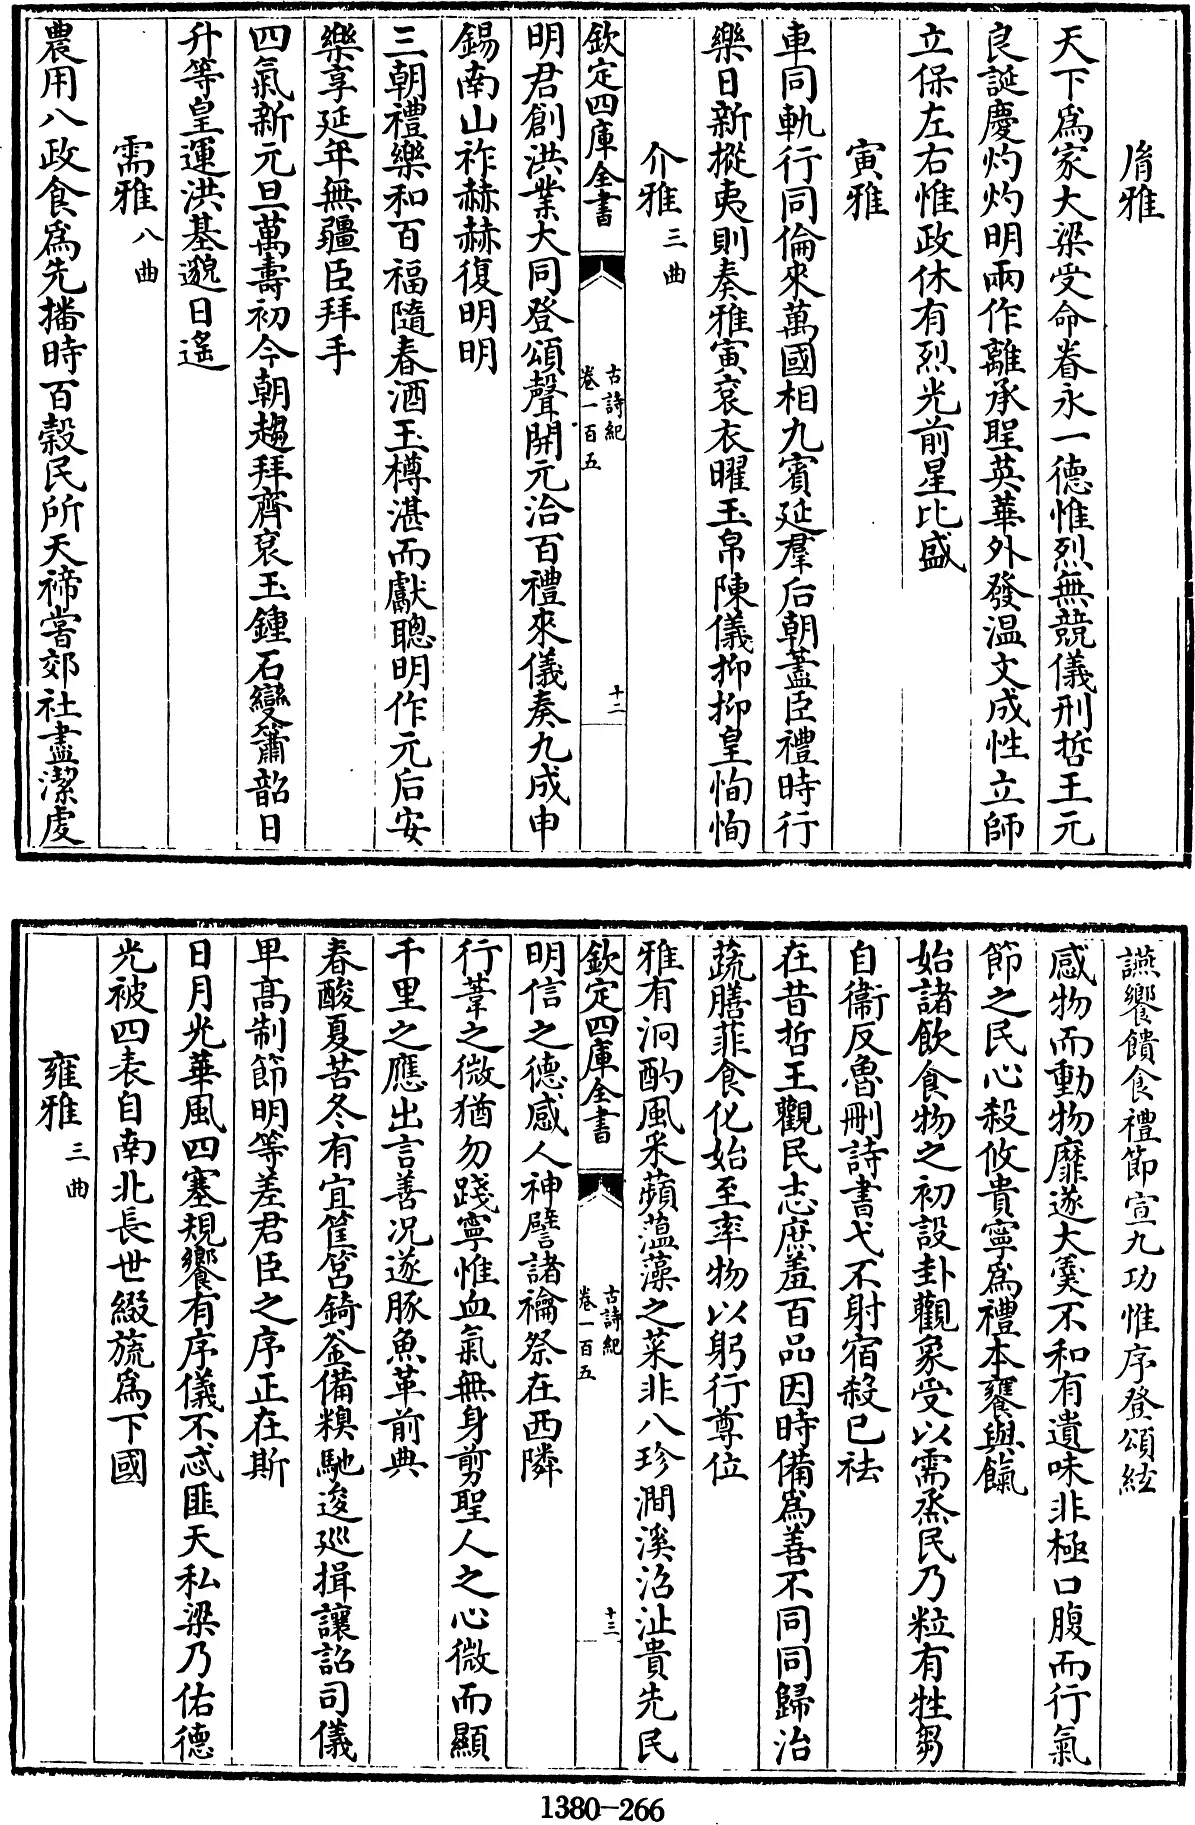 胤雅
天下為家大梁受命眷永一德惟烈無競儀刑哲王元
良誕慶灼灼明兩作離承聖英華外發温文成性立師
立保左右惟政休有烈光前星比盛
寅雅
車同軌行同倫來萬國相九賓延羣后朝藎臣禮時行
樂日新摐夷則奏雅寅衮衣曜玉帛陳儀抑抑皇恂恂
介雅三曲
欽定四庫全書
古詩紀
卷一百五
十二
明君創洪業大同登頌聲開元洽百禮來儀奏九成申
錫南山祚赫赫復明明
三朝禮樂和百福隨春酒玉樽湛而獻聰明作元后安
樂享延年無疆臣拜手
四氣新元旦萬壽初今朝趨拜齊衮玉鍾石變簫韶日
升等皇運洪基邈日遙
需雅八曲
農用八政食為先播時百穀民所天禘嘗郊社盡潔虔
讌饗饋食禮節宣九功惟序登頌絃
感物而動物靡遂大羹不和有遺味非極口腹而行氣
節之民心殺攸貴寧為禮本饔與餼
始諸飲食物之初設卦觀象受以需烝民乃粒有牲芻
自衛反魯刪詩書弋不射宿殺已祛
在昔哲王觀民志庶羞百品因時備為善不同同歸治
蔬膳菲食化始至率物以躬行尊位
雅有泂酌風采蘋蕰藻之菜非八珍澗溪沼沚貴先民
欽定四庫全書
古詩紀
卷一百五
十三
明信之德感人神譬諸禴祭在西隣
行葦之微猶勿踐寧惟血氣無身剪聖人之心微而顯
千里之應出言善况遂豚魚革前典
春酸夏苦冬有宜筐筥錡釜備糗馳逡巡揖讓詔司儀
卑高制節明等差君臣之序正在斯
日月光華風四塞規饗有序儀不忒匪天私梁乃佑德
光被四表自南北長世綴旒為下國
雍雅三曲
1380-266